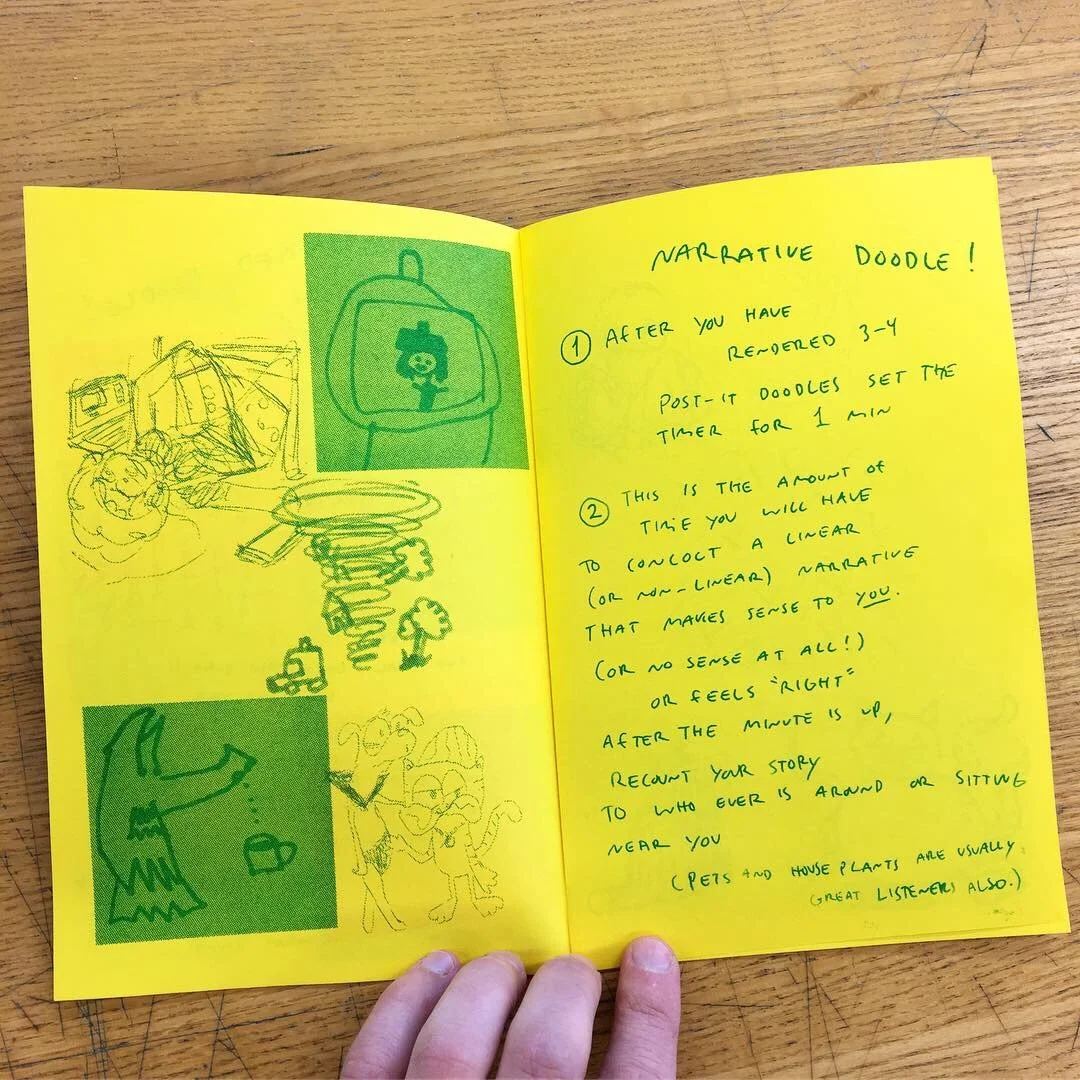 NARRATIVE DOODLE!
1 AFTER YOU HAVE
RENDERED 3-4
POST-IT DOODLES SET THE
TIMER FOR 1 MIN
2 THIS IS THE AMOUNT OF
TIME YOU WILL HAVE
TO CONCOCT A LINEAR
(OR NON-LINEAR) NARRATIVE
THAT MAKES SENSE TO YOU.
(OR NO SENSE AT ALL!)
OR FEELS "RIGHT"
AFTER THE MINUTE IS UP,
RECOUNT YOUR STORY
TO WHO EVER IS AROUND OR SITTING
NEAR YOU
(PETS AND HOUSE PLANTS ARE USUALLY
GREAT LISTENERS ALSO.)